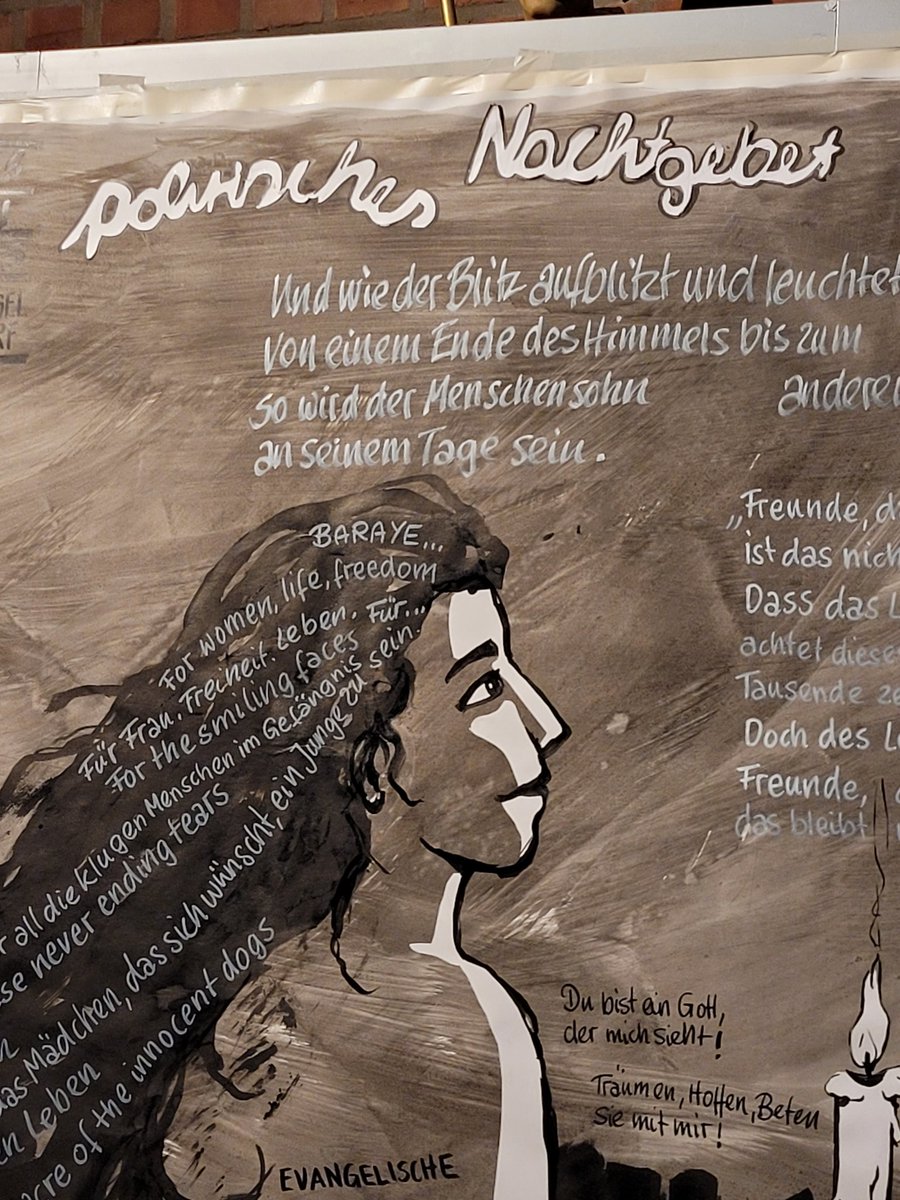 politisches Nachtgebet
Und wie der Blitz aufblitzt und leuchtet
von einem Ende des Himmels bis zum
so wird der Menschensohn anderen
an seinem Tage sein.
BARAYE...
For women, life, freedom
Für Frau. Freiheit. Leben. Für...
For the smiling faces
all die klugen Menschen im Gefängnis sein.
never ending tears
das Mädchen, das sich wünscht, ein Junge zu
Leben
of the innocent dogs
„Freunde,
ist das
Dass das
achtet
Tausende
Doch des
Freunde,
das bleibt
Du bist ein Gott,
der mich sieht!
Träumen, Hoffen, Beten
Sie mit mir!
EVANGELISCHE